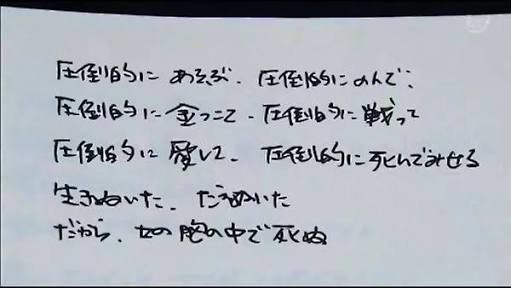 圧倒的に あそぶ、圧倒的にのんで、
圧倒的に 金つこて、圧倒的に戦って
圧倒的に 愛して、圧倒的に死んでみせる
生きぬいた、だきぬいた
だから、女の胸の中で死ぬ